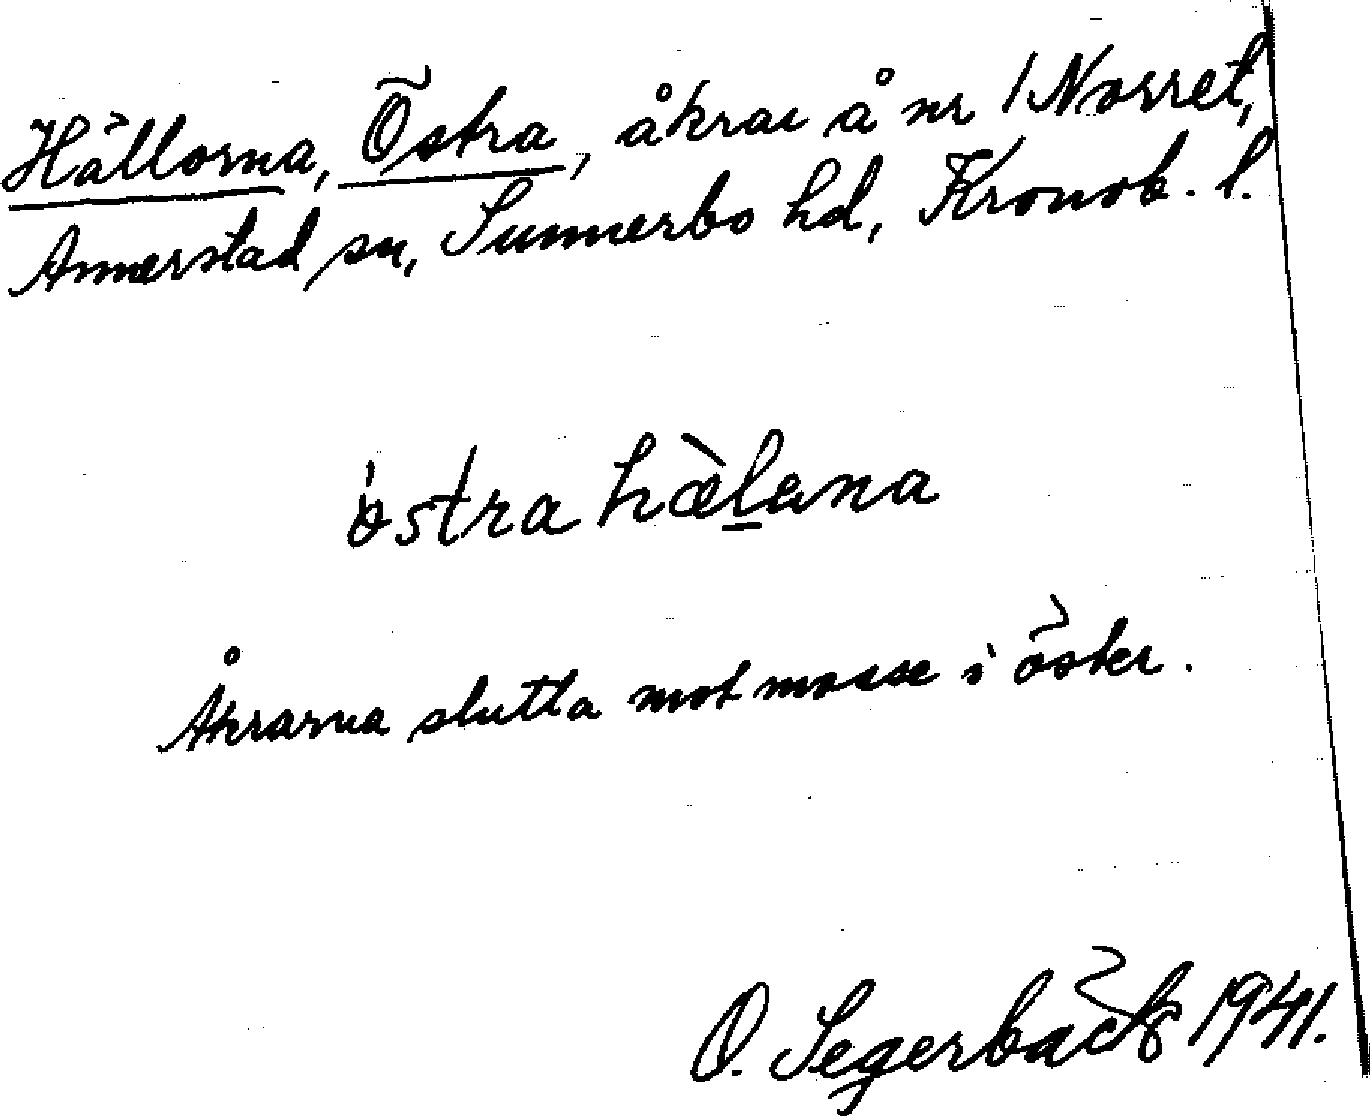 Hällorna, Östra, åkrar å nr 1 Norret,
Annerstad sn, Sunnerbo hd, Kronob. l.
östra hæ̀l̠ana
Åkrarna slutta mot mosse i öster.
O. Segerbäck 1941.